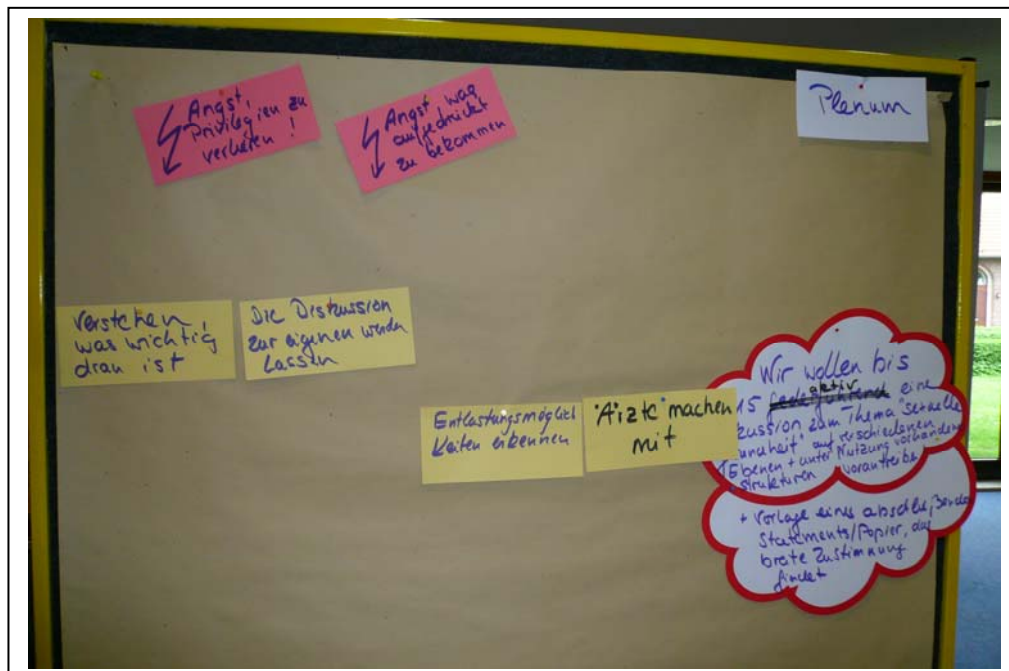 Angst,
Privilegien zu
verlieren !
Angst, was
aufgedrückt
zu bekommen
Plenum
Verstehen,
was wichtig
dran ist
Die Diskussion
zur eigenen werden
lassen
Entlastungsmöglich
keiten erkennen
"Ärzte" machen
mit
Wir wollen bis
aktiv
15 federführend eine
zum Thema "sexuelle
auf verschiedenen
Ebenen + unter Nutzung vorhandene
strukturen vorantreiben
+ Vorlage eines abschließenden
Statements/Papier, das
breite Zustimmung
findet